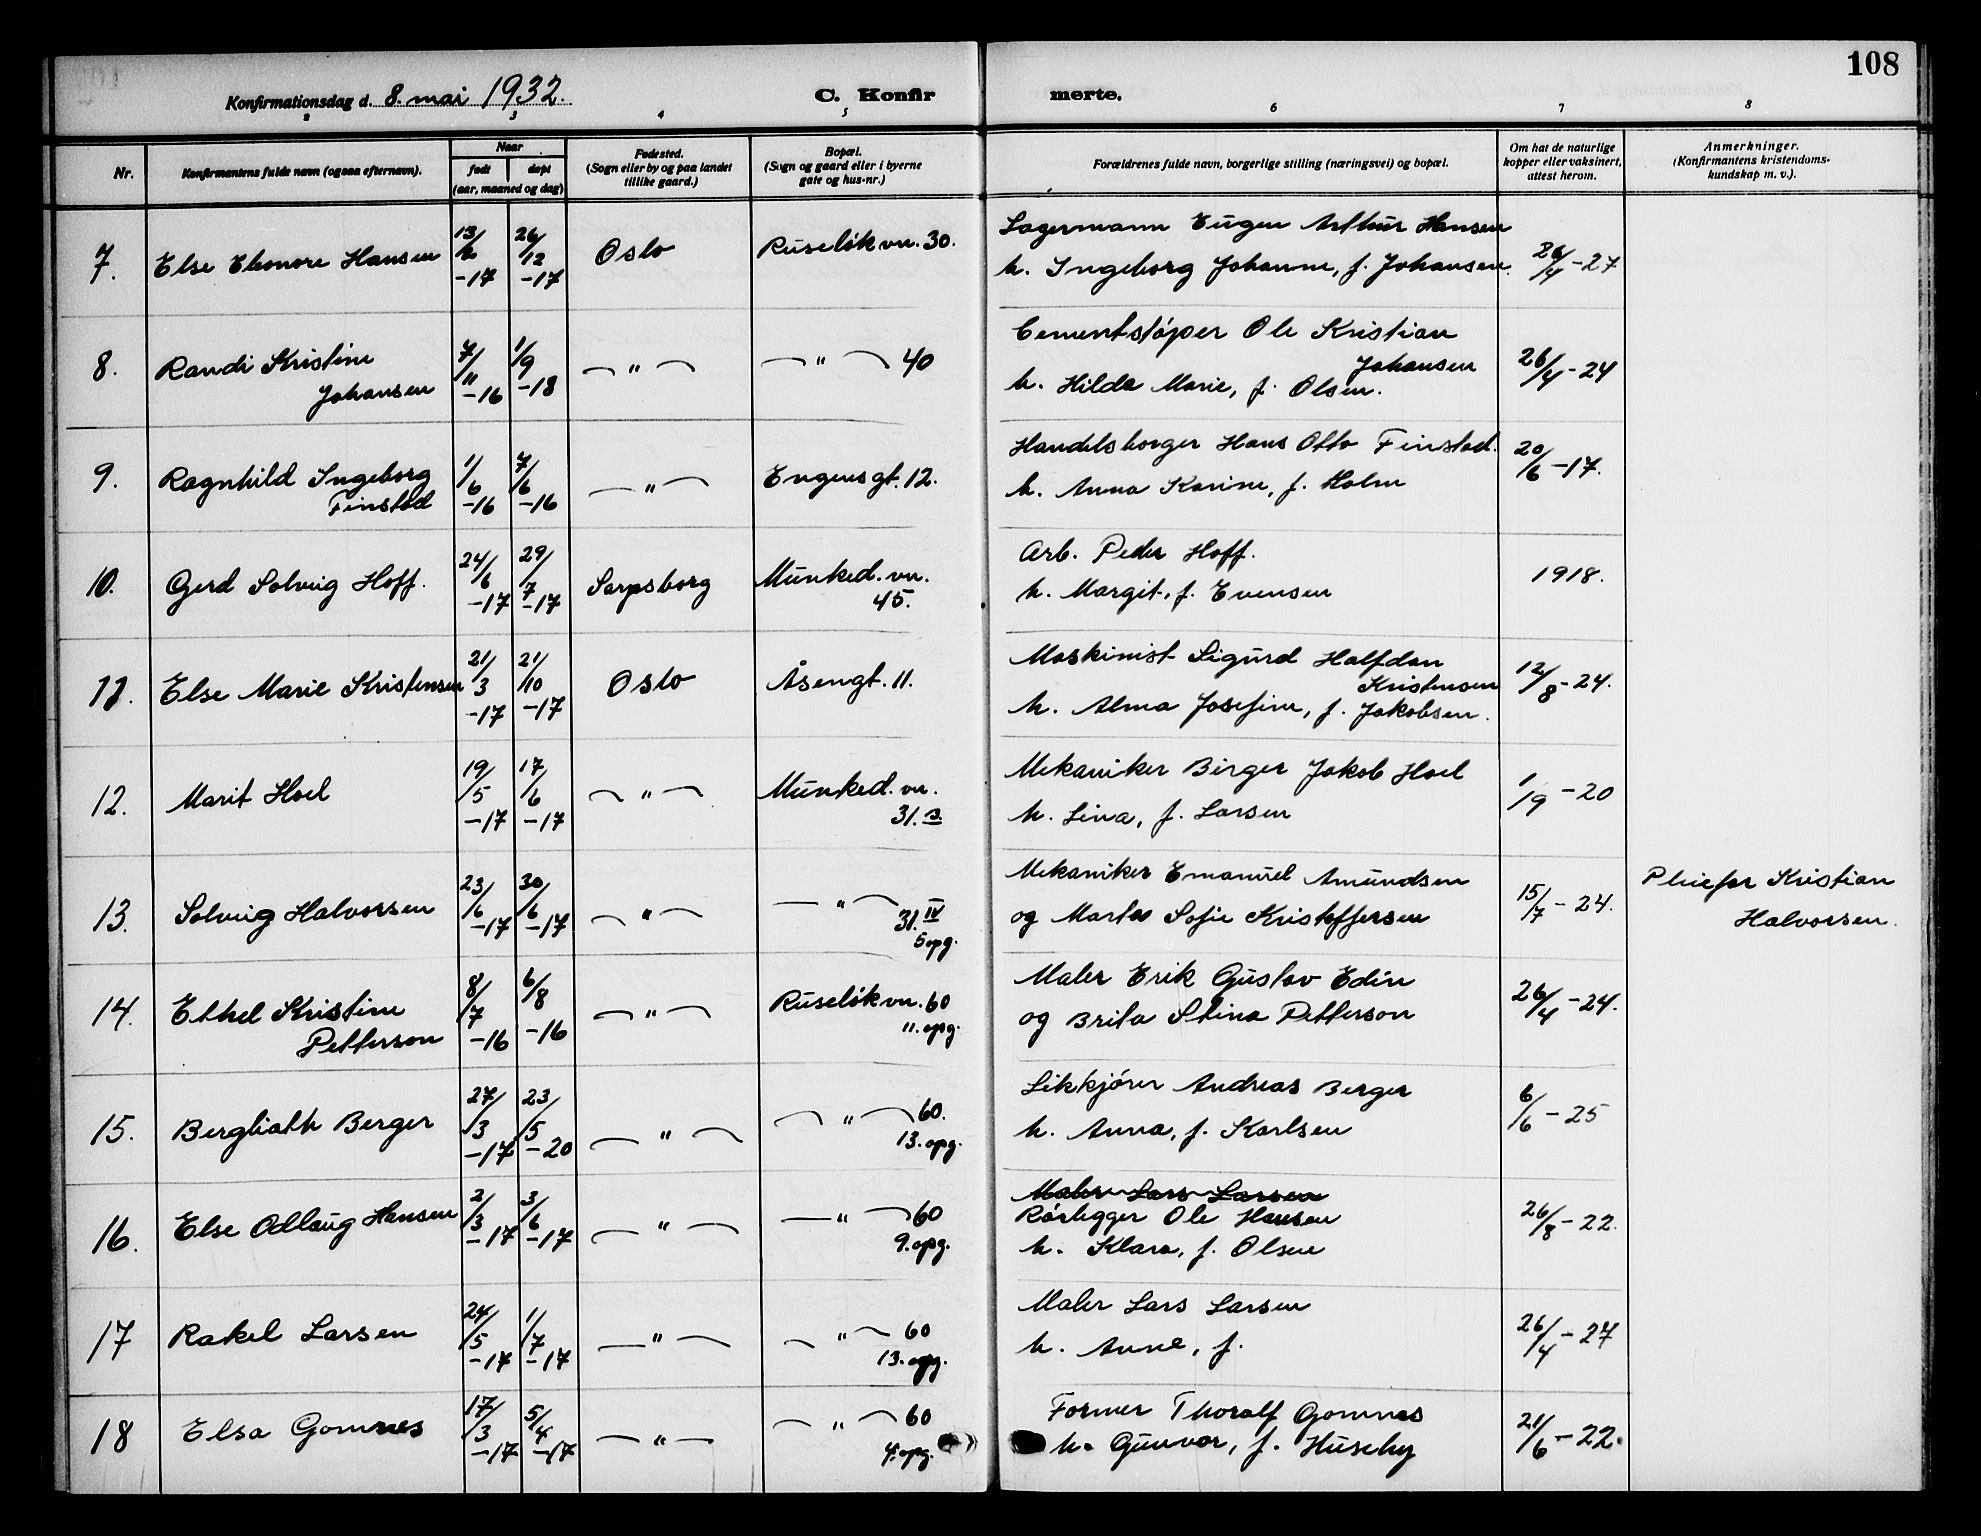 108
Konfirmationsdag d. 8. mai 1932. C. Konfir merte.
2 3 4 5 6 7 8
Nr. Konfirmantens fulde navn (ogsaa efternavn). Naar født døpt (aar, maaned og dag) Fødested. (Sogn eller by og paa landet tillike gaard.) Bopæl. (Sogn og gaard eller i byerne gate og hus-nr.) Forældrenes fulde navn, borgerlige stilling (næringsvei) og bopæl. Om hat de naturlige kopper eller vaksinert, attest herom. Anmerkninger. (Konfirmantens kristendoms-kundskap m. v.).
7. Else Eleonore Hansen 13/2 -17 26/12 -17 Oslo Ruseløkvn. 30. Lagermann Eugen Arthur Hansen 26/4 -27
h. Ingeborg Johanne, f. Johansen.
8. Randi Kristine 7/11 -16 1/9 -18 — " — — " — 40 Cementstøper Ole Kristian 26/4 -24
Johansen Johansen
h. Hilda Marie, f. Olsen.
9. Ragnhild Ingeborg 1/6 -16 7/6 -16 — " — Engensgt. 12. Handelsborger Hans Otto Finstad. 20/6 -17.
Finstad h. Anna Karine, f. Holm
10. Gerd Solveig Hoff. 24/6 -17 29/7 -17 Sarpsborg Munked. vn. 45. Arb. Peder Hoff. 1918.
h. Margit, f. Evensen
11. Else Marie Kristensen 21/3 -17 21/10 -17 Oslo Åsengt. 11. Maskinist Sigurd Halfdan 12/8 -24.
Kristensen
h. Alma Josefine, f. Jakobsen.
12. Marit Hoel 19/5 -17 17/6 -17 — " — Munked. vn. 31. s. Mekaniker Birger Jakob Hoel 1/9 -20
h. Lina, f. Larsen
13. Solveig Halvorsen 23/6 -17 30/6 -17 — " — — " — 31. IV 5 opg. Mekaniker Emanuel Amundsen 15/7 -24. Pleiefar Kristian
og Marta Sofie Kristoffersen Halvorsen.
14. Ethel Kristine 8/7 -16 6/8 -16 — " — Ruseløkvn. 60 11. opg. Maler Erik Gustav Edin 26/4 -24.
Petterson og Brita Stina Petterson
15. Bergliath Berger 27/3 -17 23/5 -20 — " — — " — 60. 13. opg. Likkjører Andreas Berger 6/6 -25
h. Anna, f. Karlsen
Maler Lars Larsen
16. Else Odlaug Hansen 2/3 -17 3/6 -17 — " — — " — 60 9. opg. Rørlegger Ole Hansen 26/8 -22.
h. Klara, f. Olsen
17 Rakel Larsen 24/5 -17 1/7 -17 — " — — " — 60 13. opg. Maler Lars Larsen 26/4 -27
h. Anne, f.
18 Elsa Gomnes 17/3 -17 5/4 -17 — " — — " — 60 4. opg. Former Thoralf Gomnes 21/6 -22.
h. Gunvor, f. Huseby